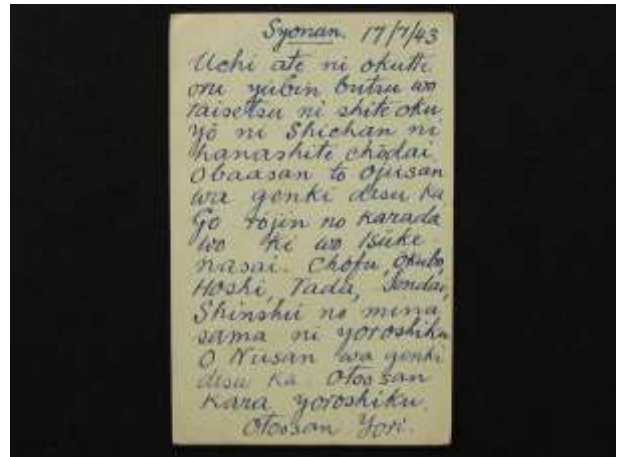 Syonan. 17/7/43
Uchi ate ni okutte
oru yubin butsu wo
taisetsu ni shite oku
yō ni Shichan ni
hanashite chōdai
Obaasan to Ojiisan
wa genki desu ka
Go rojin no karada
wo ki wo tsuke
nasai. Chofu, Okubo,
Hoshi, Tada, Sendai,
Shinshū no mina
sama ni yoroshiku
O Niisan wa genki
desu ka. Otoosan
kara yoroshiku.
Otoosan Yori.